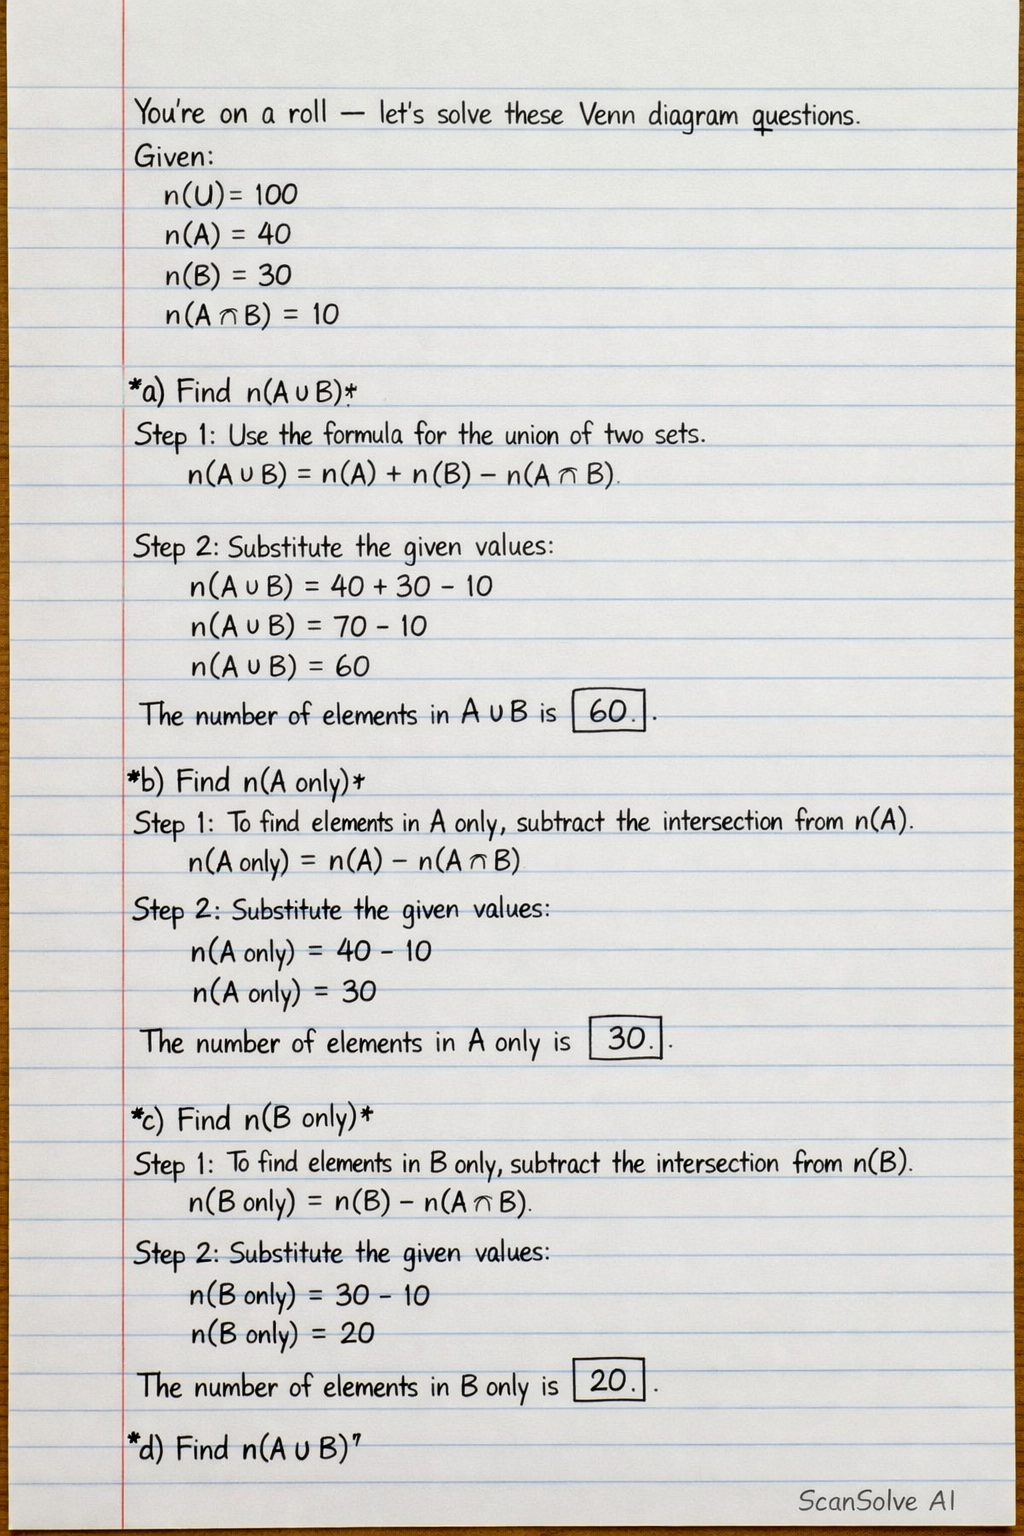 You're on a roll — let's solve these Venn diagram questions.
Given:
n(U) = 100
n(A) = 40
n(B) = 30
n(A ∩ B) = 10
*a) Find n(A ∪ B)*
Step 1: Use the formula for the union of two sets.
n(A ∪ B) = n(A) + n(B) − n(A ∩ B).
Step 2: Substitute the given values:
n(A ∪ B) = 40 + 30 − 10
n(A ∪ B) = 70 − 10
n(A ∪ B) = 60
The number of elements in A ∪ B is 60. .
*b) Find n(A only)*
Step 1: To find elements in A only, subtract the intersection from n(A).
n(A only) = n(A) − n(A ∩ B)
Step 2: Substitute the given values:
n(A only) = 40 − 10
n(A only) = 30
The number of elements in A only is 30. .
*c) Find n(B only)*
Step 1: To find elements in B only, subtract the intersection from n(B).
n(B only) = n(B) − n(A ∩ B).
Step 2: Substitute the given values:
n(B only) = 30 − 10
n(B only) = 20
The number of elements in B only is 20. .
*d) Find n(A ∪ B)'
ScanSolve AI